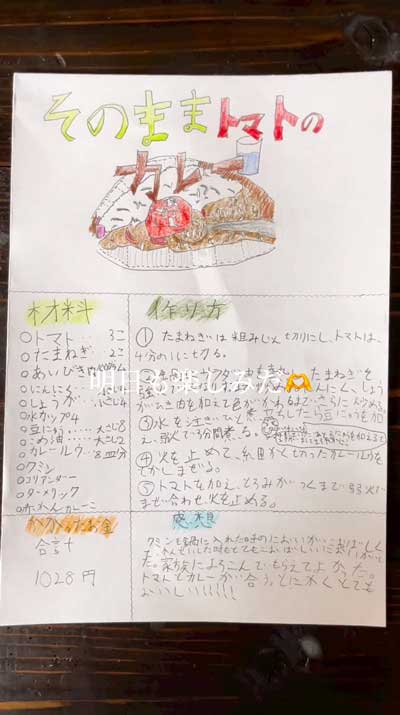 そのままトマトの
カレー
材料
○トマト…3こ
○たまねぎ…2こ
○あいびき肉
○にんにく
○しょうが
○水カップ4
○豆にゅう…大さじ8
○こめ油…大さじ2
○カレールウ…8皿分
○クミン
○コリアンダー
○ターメリック
作り方
① たまねぎは粗みじん切りにし、トマトは、
4分の1に切る。
たまねぎを
明日も楽しみだ🫶
にんにく、しょう
がひき肉を加えて色がかわるまで、さらに炒める。
③水を注ぎ
豆にゅうを加
え、弱火で3分間煮る。
④火を止めて、細かく切ったカレールウを
とかしまぜる。
⑤トマトを加え、とろみがつくまで弱火で
まぜ合わせ、火を止める。
かかったお金
合計
1028円
感想
クミンを鍋に入れた時のにおいが
た。家族によろこんでもらえてよかった。
トマトとカレーが合う。とにかくとても
おいしい!!!!!